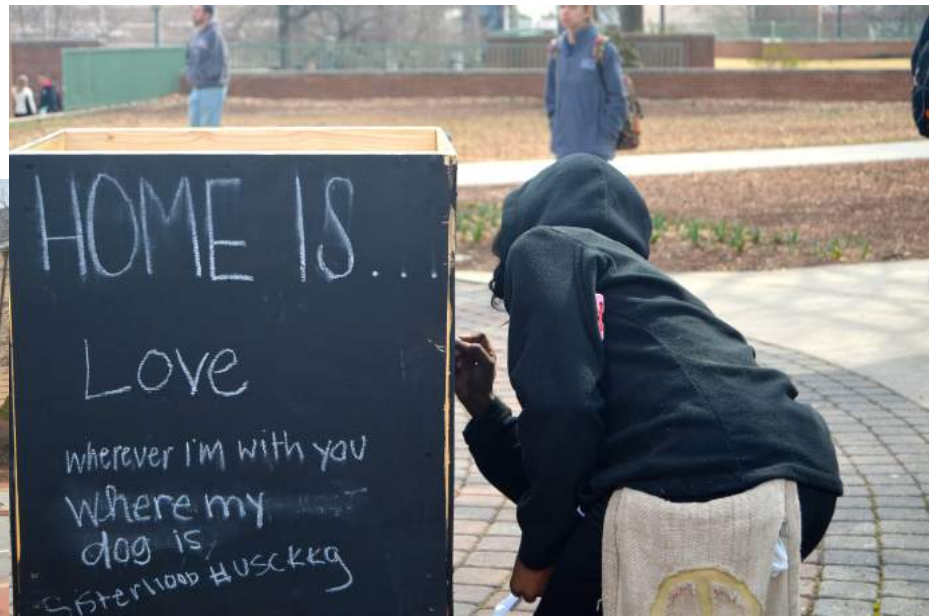 HOME IS...
Love
wherever i'm with you
where my
dog is
Sisterhood #USCKKG